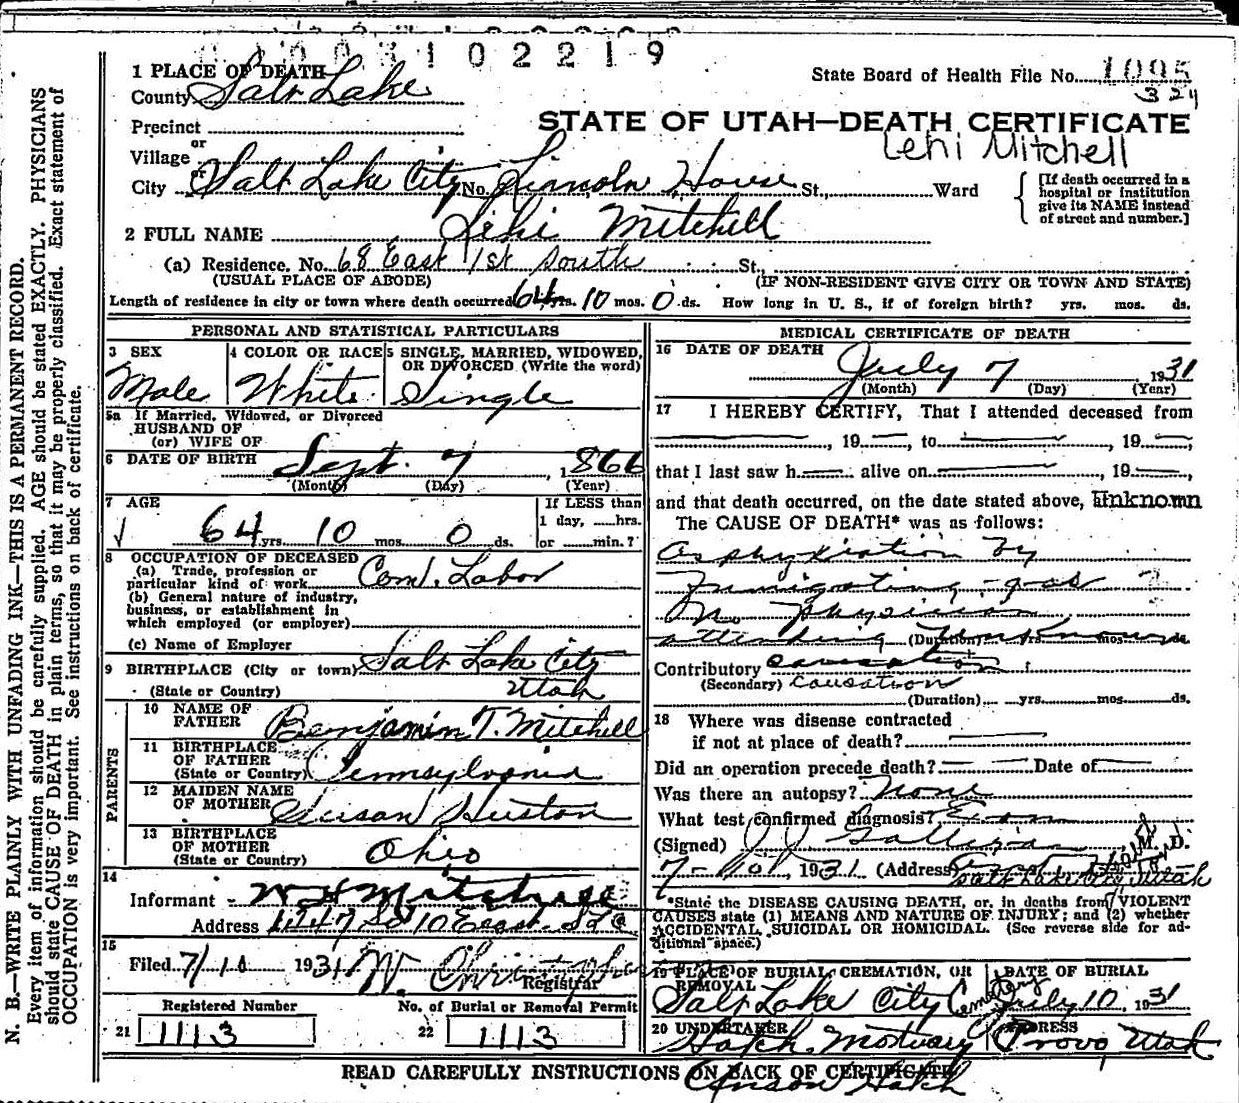 1003102219
1 PLACE OF DEATH
State Board of Health File No. 1095
324
County Salt Lake
STATE OF UTAH—DEATH CERTIFICATE
Precinct
Lehi Mitchell
or
Village
or
City Salt Lake City No. Lincoln House St., Ward
[If death occurred in a hospital or institution give its NAME instead of street and number.]
2 FULL NAME Lehi Mitchell
(a) Residence. No. 68 East 1st South St.
(USUAL PLACE OF ABODE) (IF NON-RESIDENT GIVE CITY OR TOWN AND STATE)
Length of residence in city or town where death occurred 64 yrs. 10 mos. 0 ds. How long in U. S., if of foreign birth? yrs. mos. ds.
N. B.—WRITE PLAINLY WITH UNFADING INK—THIS IS A PERMANENT RECORD.
Every item of information should be carefully supplied. AGE should be stated EXACTLY. PHYSICIANS
should state CAUSE OF DEATH in plain terms, so that it may be properly classified. Exact statement of
OCCUPATION is very important. See instructions on back of certificate.
PERSONAL AND STATISTICAL PARTICULARS
3 SEX
Male
4 COLOR OR RACE
White
5 SINGLE, MARRIED, WIDOWED,
OR DIVORCED (Write the word)
Single
5a If Married, Widowed, or Divorced
HUSBAND OF
(or) WIFE OF
6 DATE OF BIRTH Sept. 7, 1866
(Month) (Day) (Year)
7 AGE
64 yrs. 10 mos. 0 ds.
If LESS than
1 day, hrs.
or min.?
8 OCCUPATION OF DECEASED
(a) Trade, profession or
particular kind of work Com. Labor
(b) General nature of industry,
business, or establishment in
which employed (or employer)
(c) Name of Employer
9 BIRTHPLACE (City or town) Salt Lake City
(State or Country) Utah
PARENTS
10 NAME OF
FATHER Benjamin T. Mitchell
11 BIRTHPLACE
OF FATHER
(State or Country) Pennsylvania
12 MAIDEN NAME
OF MOTHER Susan Huston
13 BIRTHPLACE
OF MOTHER
(State or Country) Ohio
14
Informant W H Mitchell
Address 1247 So 10 East
15
Filed 7/10 1931 W.
Registrar
Registered Number
21 1113
No. of Burial or Removal Permit
22 1113
MEDICAL CERTIFICATE OF DEATH
16 DATE OF DEATH
July 7 1931
(Month) (Day) (Year)
17 I HEREBY CERTIFY, That I attended deceased from
, 19 , to , 19 ,
that I last saw h alive on , 19 ,
and that death occurred, on the date stated above, Unknown
The CAUSE OF DEATH* was as follows:
Asphyxiation by
Fumigating gas ?
No physician
attending (Duration) Unknown yrs. mos. ds.
Contributory causation
(Secondary) causation
(Duration) yrs. mos. ds.
18 Where was disease contracted
if not at place of death?
Did an operation precede death? Date of
Was there an autopsy? None
What test confirmed diagnosis? Exam
(Signed) J J Galligan M. D.
7- 1931 (Address)
Salt Lake City Utah
*State the DISEASE CAUSING DEATH, or, in deaths from VIOLENT
CAUSES state (1) MEANS AND NATURE OF INJURY; and (2) whether
ACCIDENTAL, SUICIDAL OR HOMICIDAL. (See reverse side for ad-
ditional space.)
19 PLACE OF BURIAL, CREMATION, OR
REMOVAL
Salt Lake City Cemetery
DATE OF BURIAL
July 10, 1931
20 UNDERTAKER
Hatch Mortuary
Anson Hatch
ADDRESS
Provo, Utah
READ CAREFULLY INSTRUCTIONS ON BACK OF CERTIFICATE